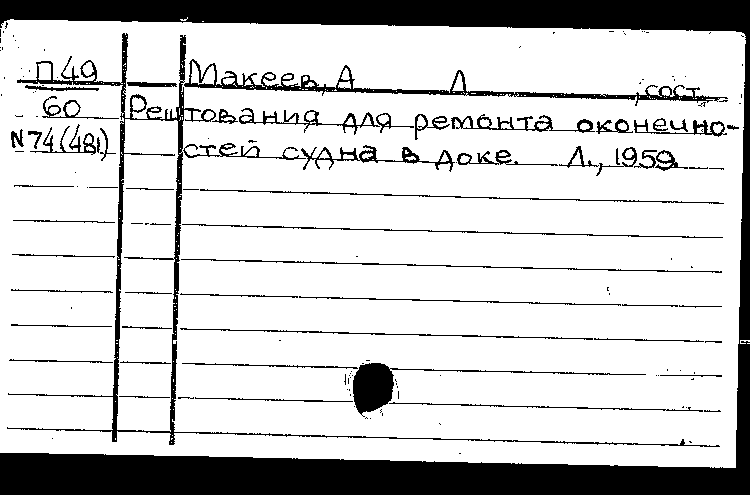 П49 Макеев, А Л , сост.
60 Рештования для ремонта оконечно-
N74(481) стей судна в доке. Л., 1959.